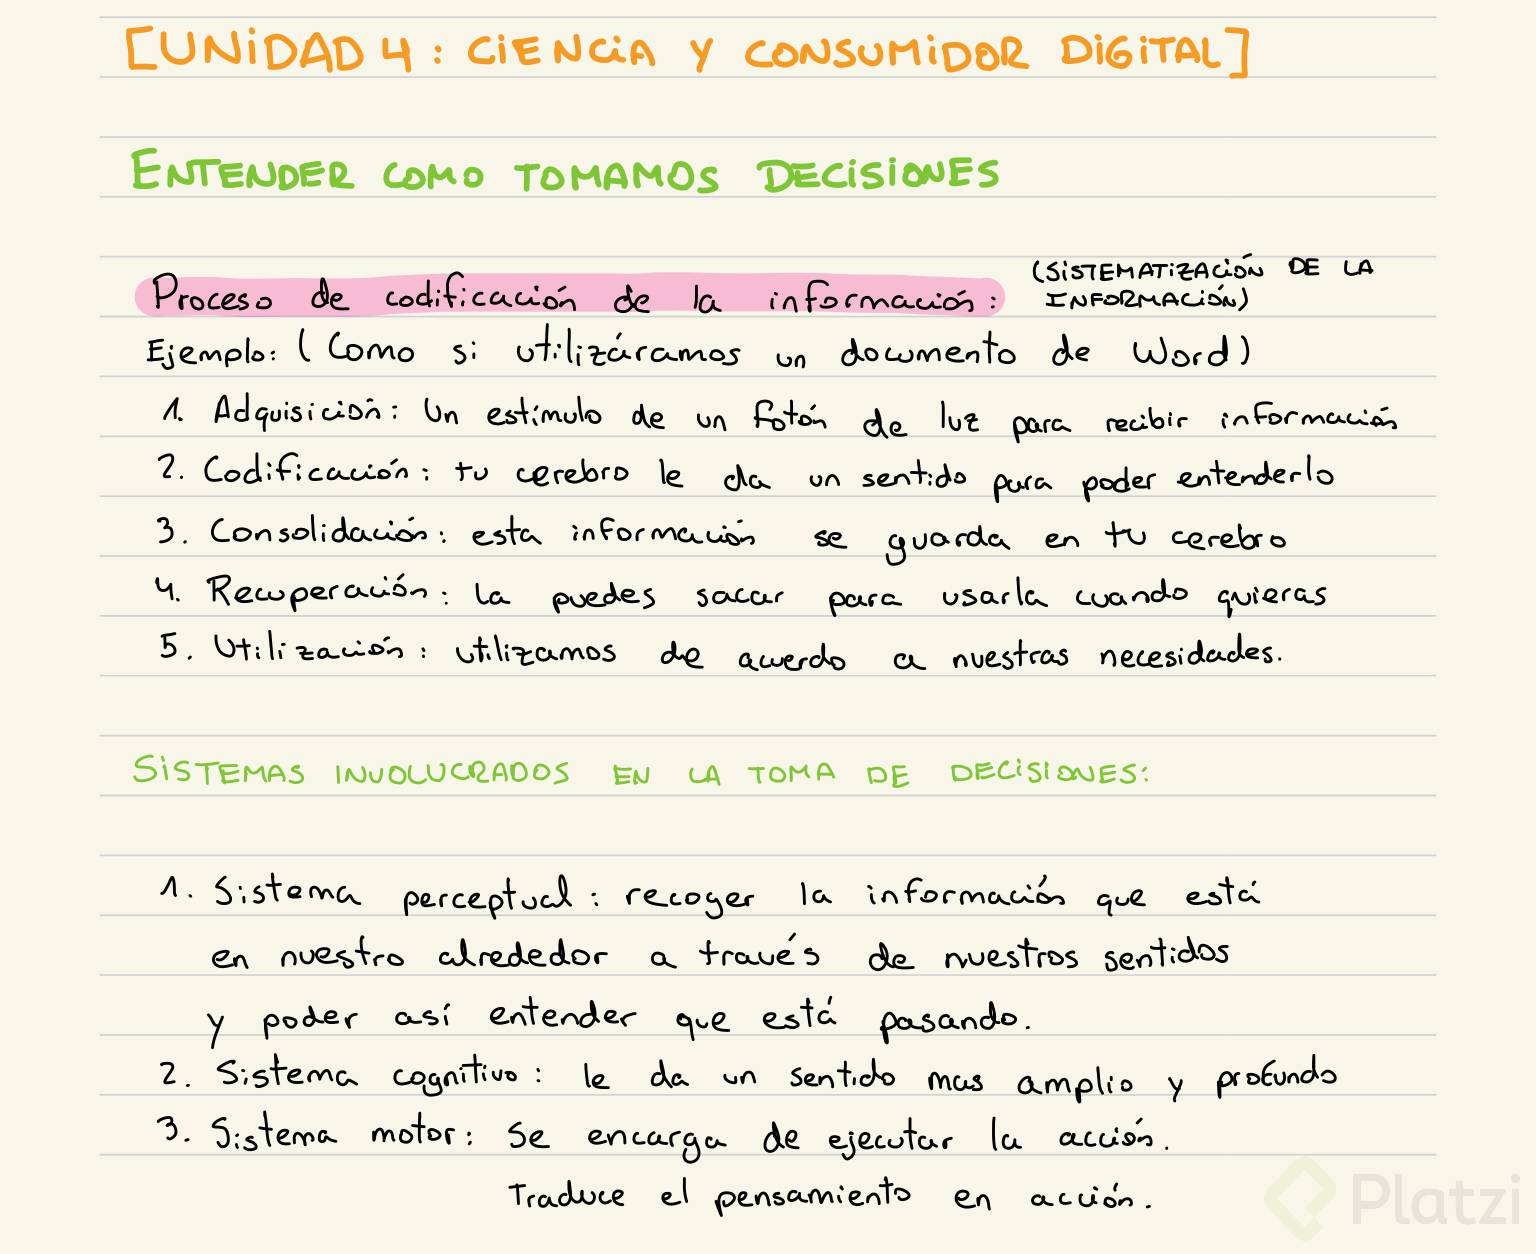 [UNiDAD 4 : CiENCiA Y CONSUMiDOR DiGiTAL]
ENTENDER COMO TOMAMOS DECiSiONES
Proceso de codificación de la información:
(SiSTEMATiZACiÓN DE LA
INFORMACiÓN)
Ejemplo: (Como si utilizáramos un documento de Word)
1. Adquisición: Un estímulo de un fotón de luz para recibir información
2. Codificación: tu cerebro le da un sentido para poder entenderlo
3. Consolidación: esta información se guarda en tu cerebro
4. Recuperación: La puedes sacar para usarla cuando quieras
5. Utilización: utilizamos de acuerdo a nuestras necesidades.
SiSTEMAS INVOLUCRADOS EN LA TOMA DE DECiSiONES:
1. Sistema perceptual: recoger la información que está
en nuestro alrededor a través de nuestros sentidos
y poder así entender que está pasando.
2. Sistema cognitivo: le da un sentido mas amplio y profundo
3. Sistema motor: Se encarga de ejecutar la acción.
Traduce el pensamiento en acción.
Platzi